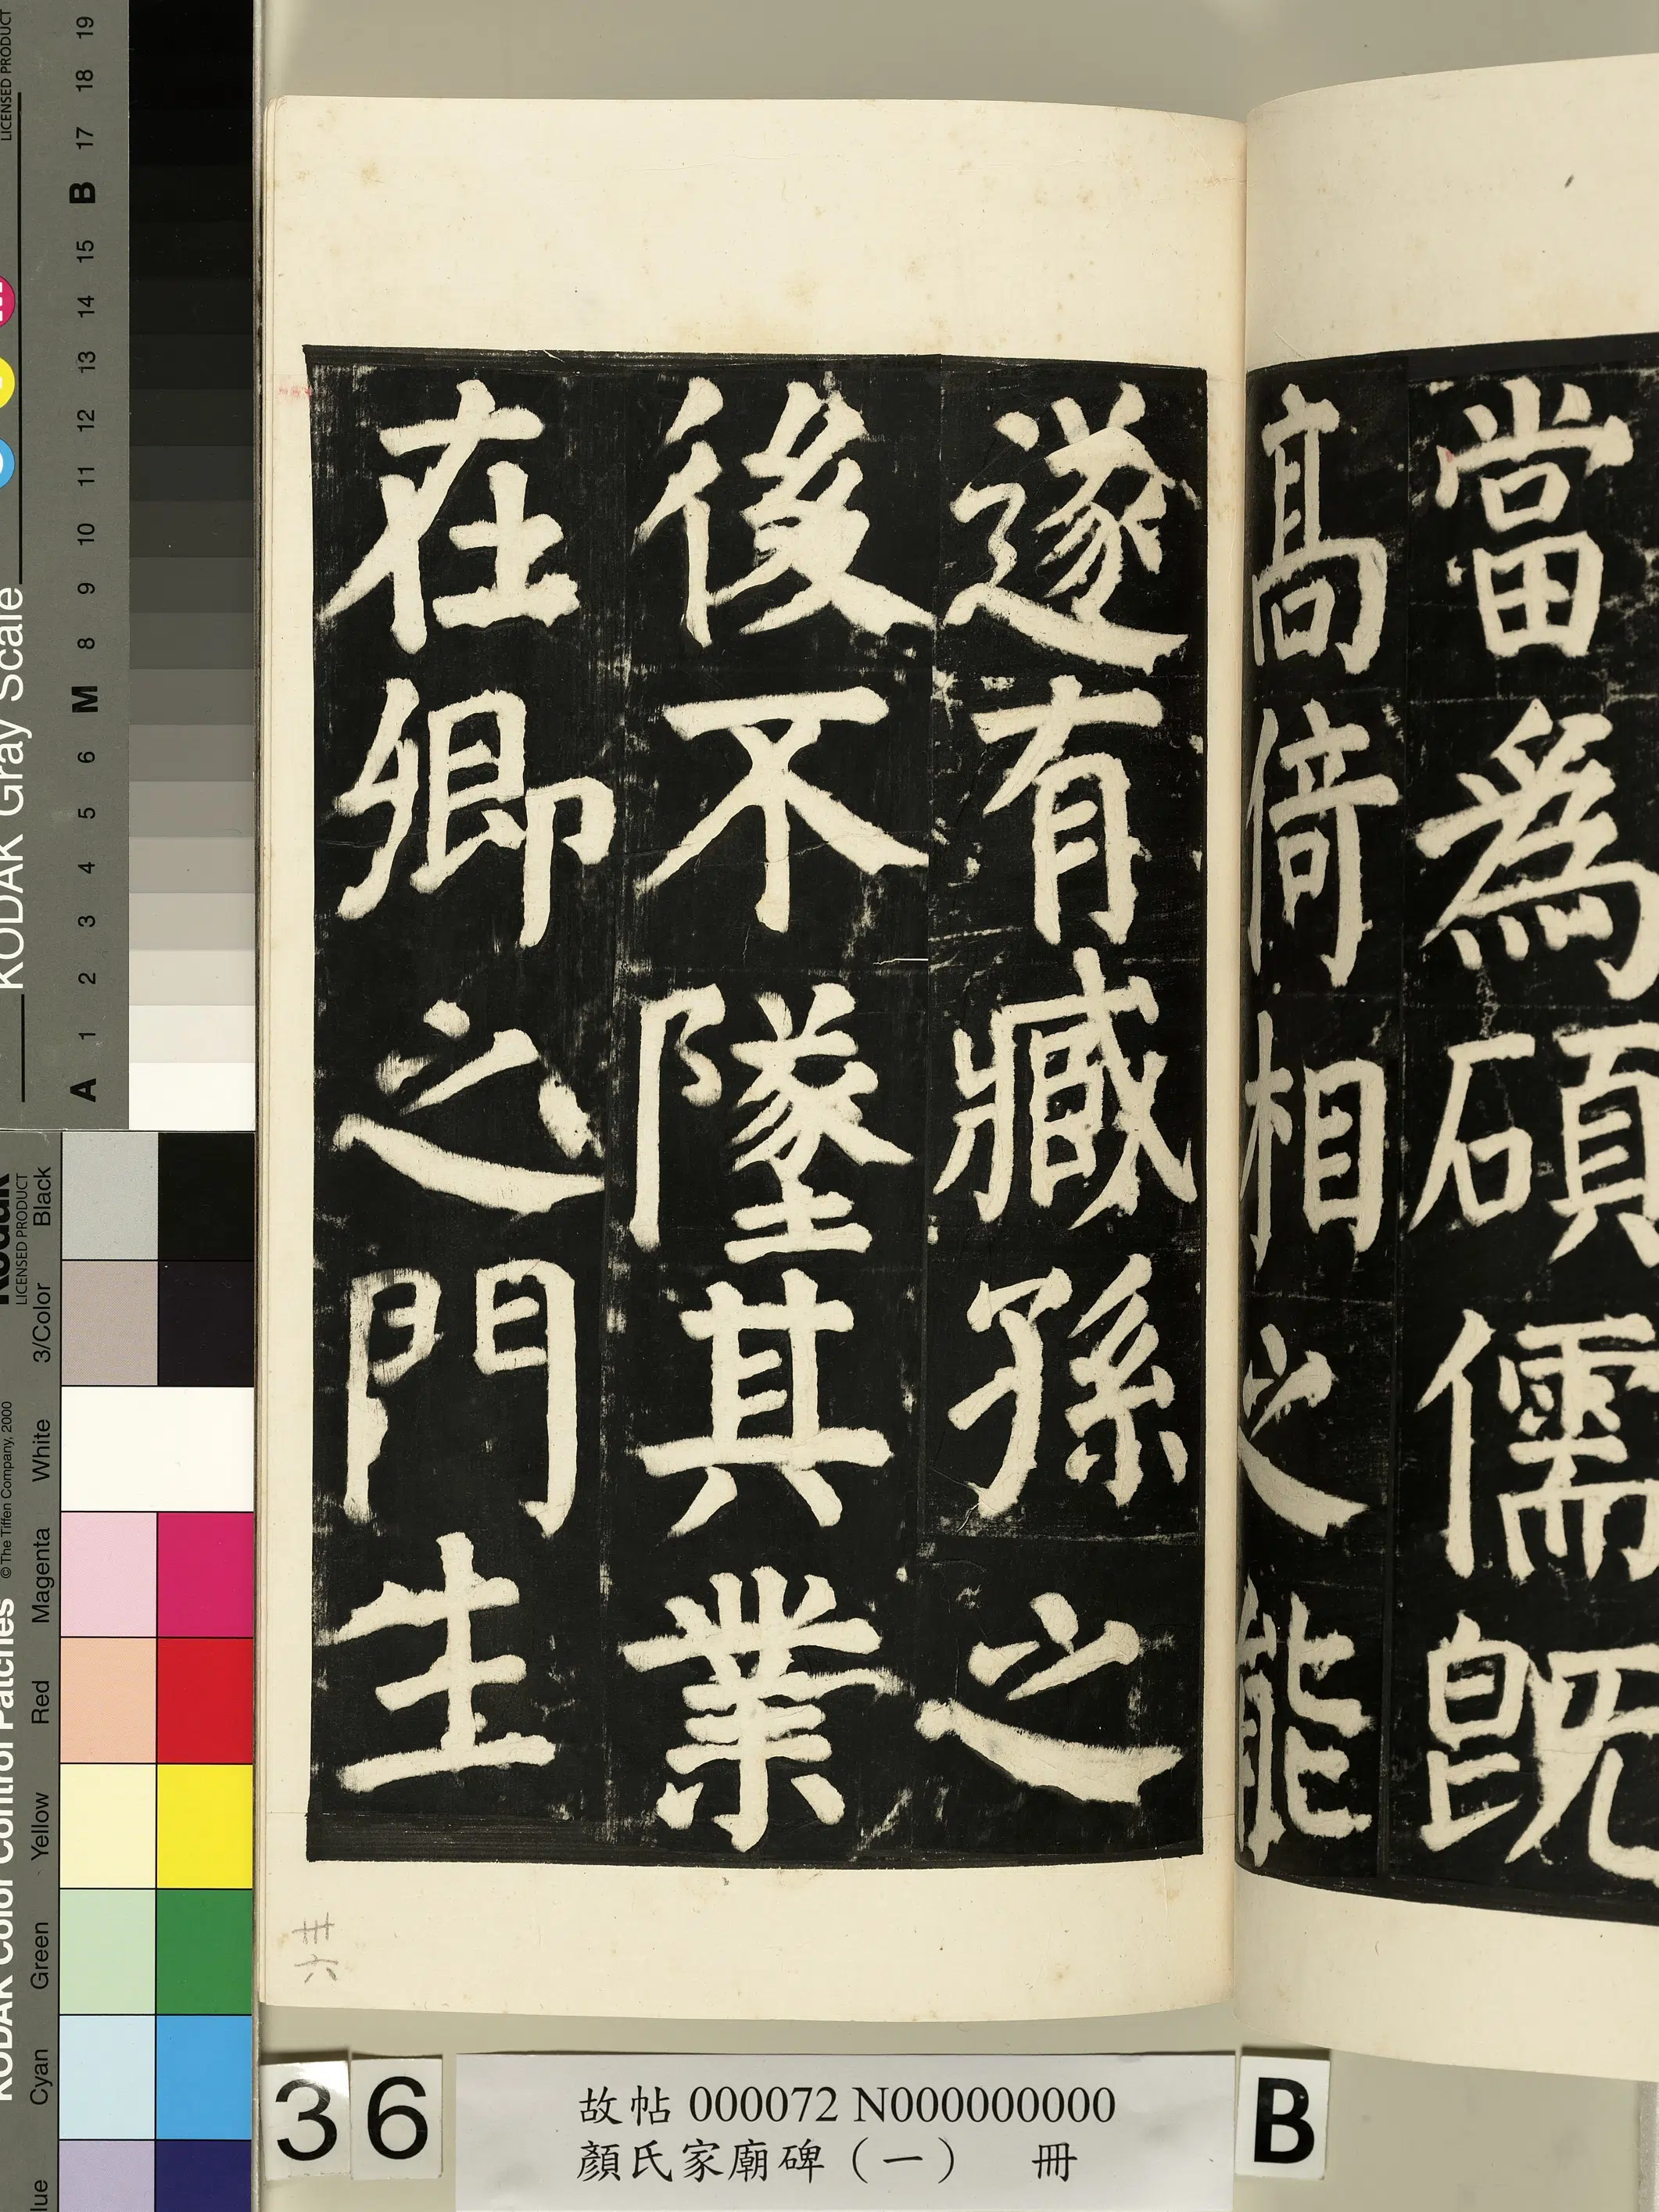 當為碩儒既
高倚相之能
遂有臧孫之
後不墜其業
在卿之門生
卅六
36
故帖 000072 N000000000
顏氏家廟碑（一） 冊
B
KODAK Gray Scale
LICENSED PRODUCT
A 1 2 3 4 5 6 M 8 9 10 11 12 13 14 15 B 17 18 19
KODAK Color Control Patches
© The Tiffen Company, 2000
Kodak
LICENSED PRODUCT
Cyan Green Yellow Red Magenta White 3/Color Black